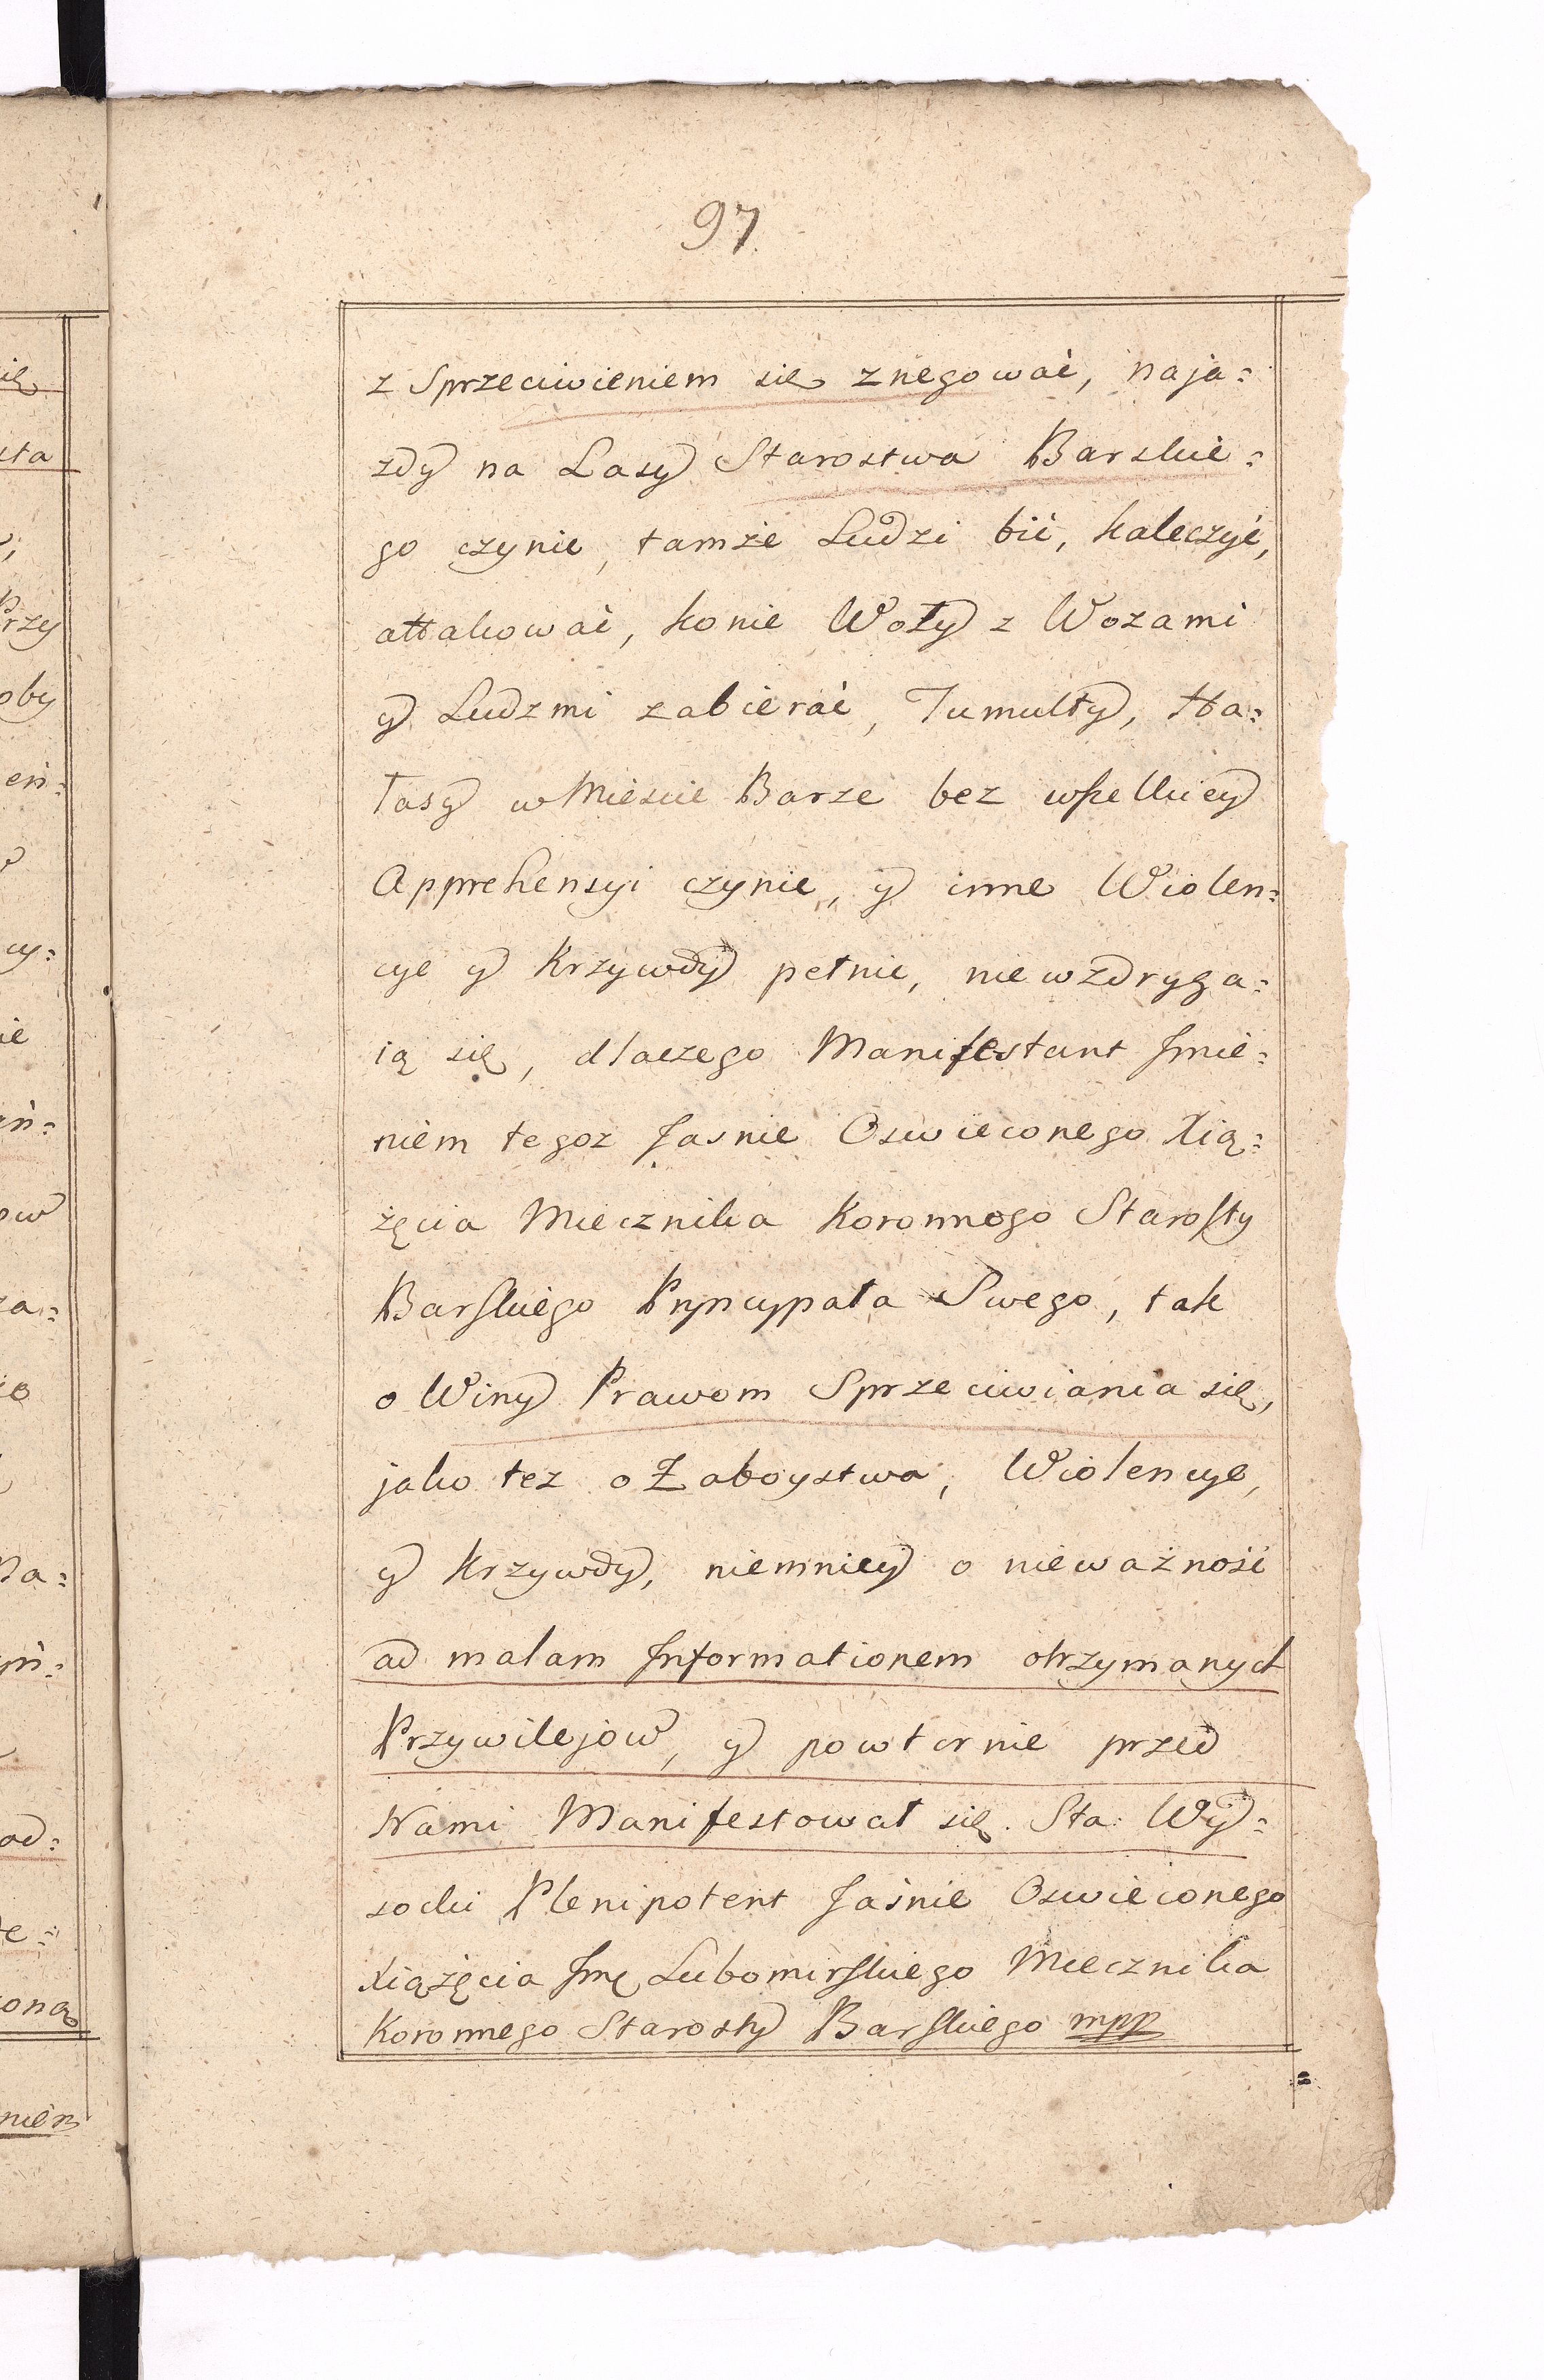 97
z Sprzeciwieniem się znegować, naja:
zdy na Lasy Starostwa Barskie:
go czynić, tamże Ludzi bić, kaleczyć,
attakować, konie Woły z Wozami
y Ludzmi zabierać, Tumulty, Ha:
łasy w Miescie Barze bez wszelkiey
Apprehensyi czynić, y inne Wiolen:
cye y Krzywdy pełnić, niewzdryga:
ią się, dlaczego Manifestant Jmie:
niem tegoz Jasnie Oswieconego Xią:
żęcia Miecznika Koronnego Starosty
Barskiego Pryncypała Swego, tak
o Winy Prawom Sprzeciwiania się,
jako tez o Zaboystwa, Wiolencye,
y Krzywdy, niemniey o nieważność
ad malam Jnformationem otrzymanych
Przywilejow, y powtornie przed
Nami Manifestował się. Sta: Wy:
socki Plenipotent Jaśnie Oswieconego
Xiążęcia Jmę Lubomirskiego Miecznika
Koronnego Starosty Barskiego mpp
ię
sta
Przy
oby
eń:
cy:
ie
ow
za:
Na:
od:
te:
oną
niem